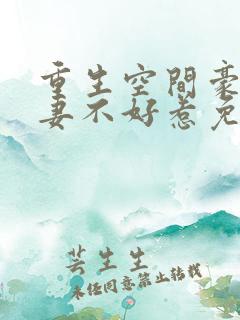 重生空間豪
妻不好惹免
芸生生
未经同意禁止转载